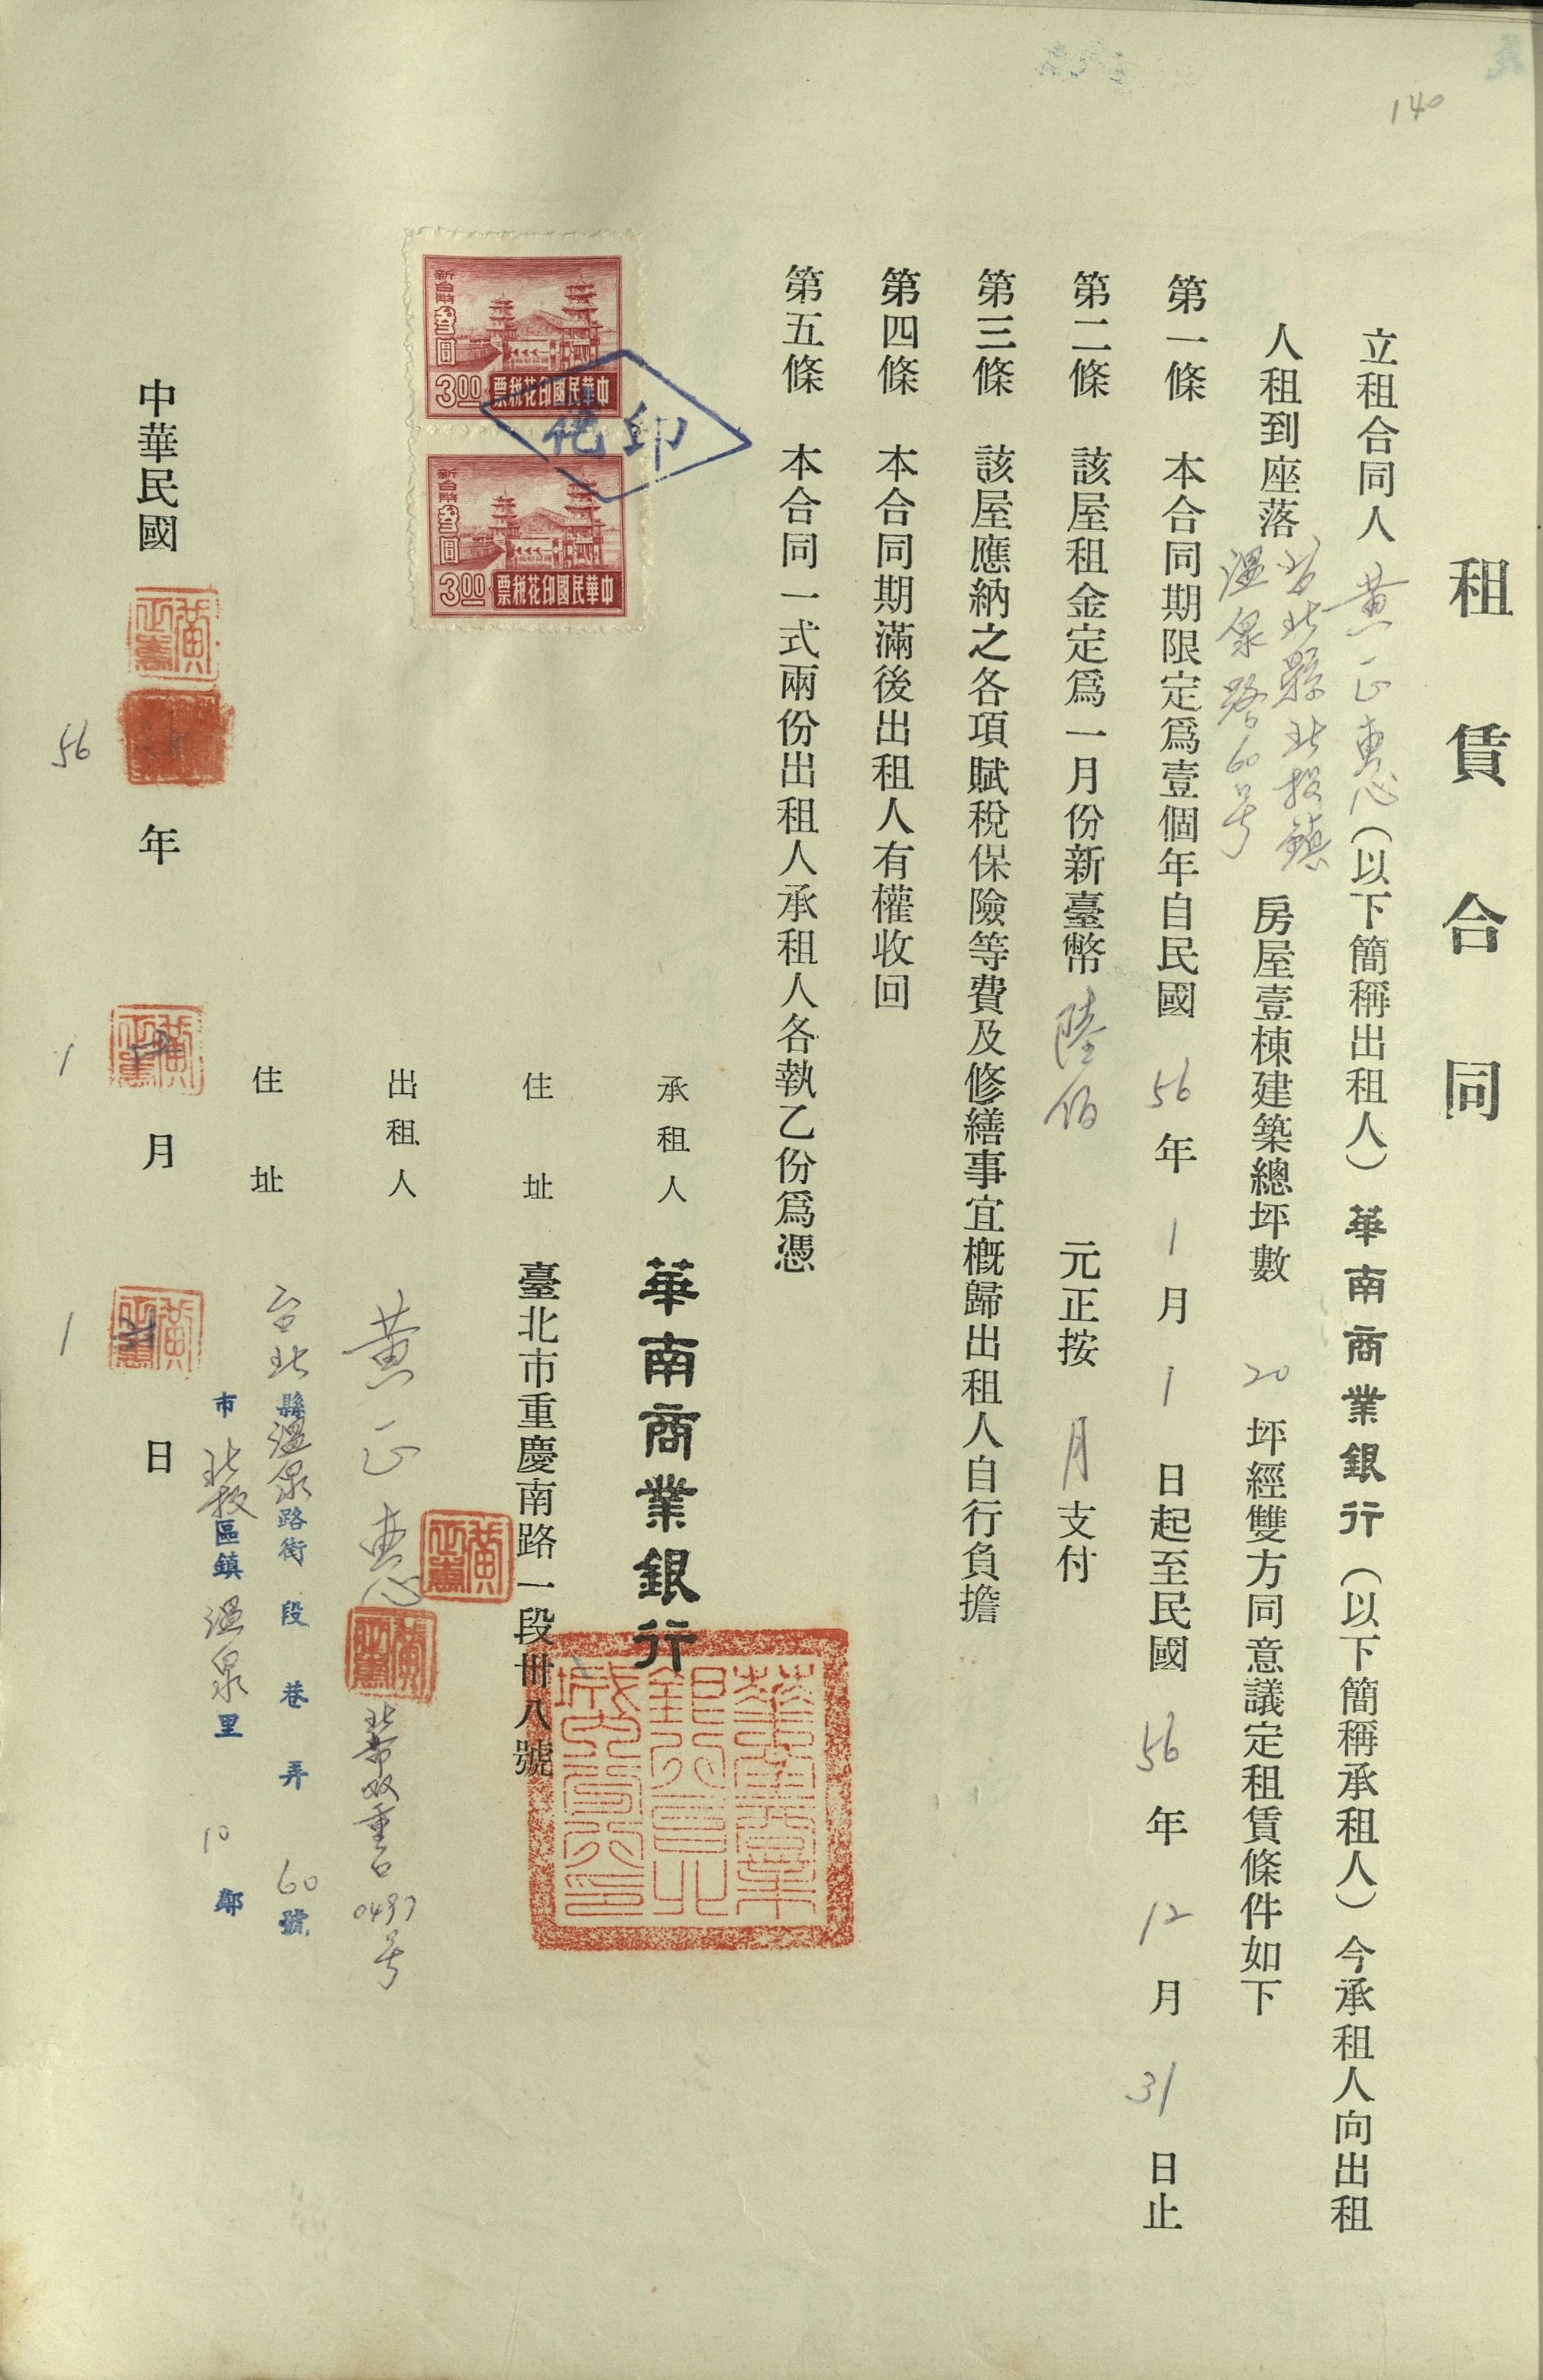 140
租賃合同
立租合同人 黄正惠（以下簡稱出租人）華南商業銀行（以下簡稱承租人）今承租人向出租
人租到座落 台北縣北投鎮
溫泉路60号 房屋壹棟建築總坪數 20 坪經雙方同意議定租賃條件如下
第一條 本合同期限定爲壹個年自民國 56 年 1 月 1 日起至民國 56 年 12 月 31 日止
第二條 該屋租金定爲一月份新臺幣 陸佰 元正按 月 支付
第三條 該屋應納之各項賦稅保險等費及修繕事宜概歸出租人自行負擔
第四條 本合同期滿後出租人有權收回
第五條 本合同一式兩份出租人承租人各執乙份爲憑
新台幣叁圓
3.00
中華民國印花稅票
新台幣叁圓
3.00
中華民國印花稅票
印花
承租人 華南商業銀行
住址 臺北市重慶南路一段卌八號
出租人 黄正惠 0497号
住址 台北縣溫泉路街 段 巷 弄 60號
市 北投區鎮 溫泉里 10 鄰
中華民國 年 月 日
56 1 1